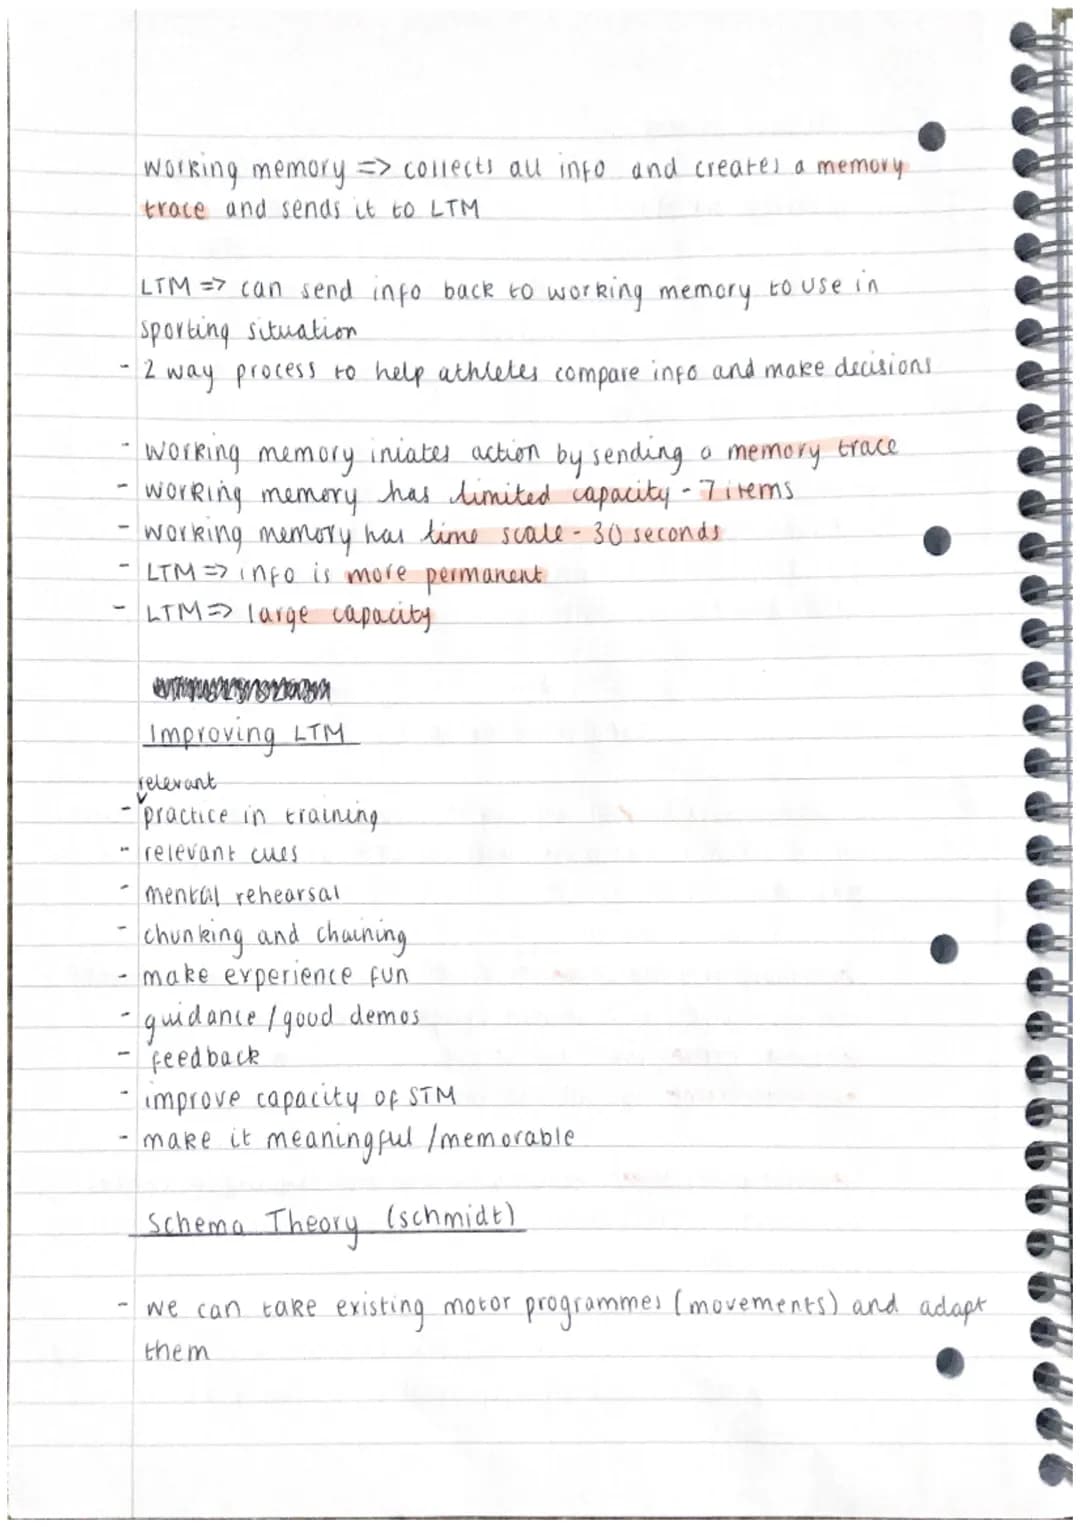 working memory => collects all info and creates a memory
trace and sends it to LTM
LTM => can send info back to working memory to use in
sporting situation
- 2 way process to help athletes compare info and make decisions
- working memory iniates action by sending a memory trace
- working memory has limited capacity - 7 items
- working memory has time scale - 30 seconds
- LTM => info is more permanent
- LTM => large capacity
Improving LTM
relevant
- practice in training
- relevant cues
- mental rehearsal
- chunking and chaining
- make experience fun
- guidance / good demos
- feedback
- improve capacity of STM
- make it meaningful / memorable
Schema Theory (schmidt)
- we can take existing motor programmes (movements) and adapt
them